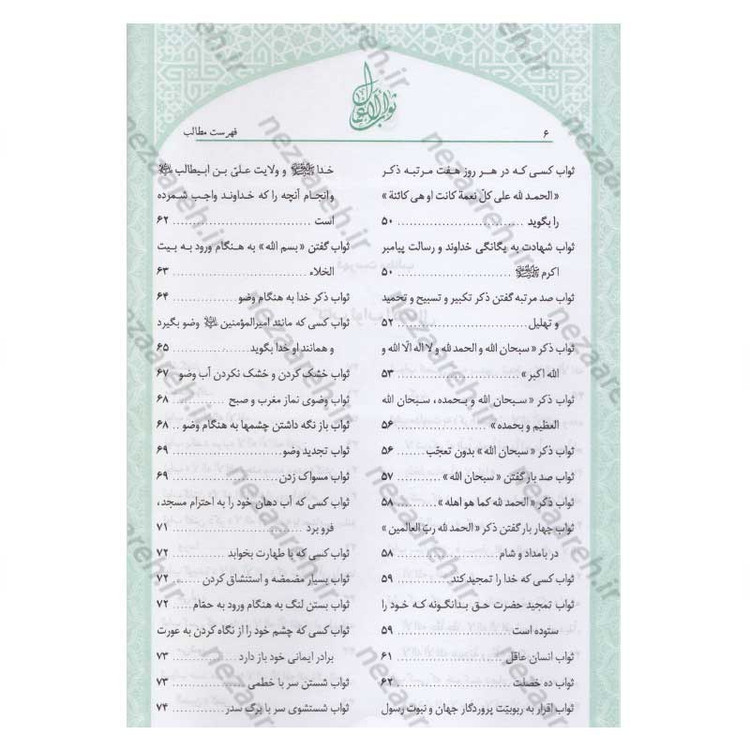 ثواب الاعمال
۶
فهرست مطالب
ثواب کسی که در هر روز هفت مرتبه ذکر
«الحمد لله علی کلّ نعمة کانت او هی کائنة»
را بگوید ............ ۵۰
ثواب شهادت به یگانگی خداوند و رسالت پیامبر
اکرم ﷺ ............ ۵۰
ثواب صد مرتبه گفتن ذکر تکبیر و تسبیح و تحمید
و تهلیل ............ ۵۲
ثواب ذکر «سبحان الله و الحمد لله و لا اله الّا الله و
الله اکبر» ............ ۵۳
ثواب ذکر «سبحان الله و بحمده، سبحان الله
العظیم و بحمده» ............ ۵۶
ثواب ذکر «سبحان الله» بدون تعجّب ... ۵۶
ثواب صد بار گفتن «سبحان الله» ...... ۵۷
ثواب ذکر «الحمد لله کما هو اهله» ... ۵۸
ثواب چهار بار گفتن ذکر «الحمد لله ربّ العالمین»
در بامداد و شام ............ ۵۸
ثواب کسی که خدا را تمجید کند ...... ۵۹
ثواب تمجید حضرت حق بدانگونه که خود را
ستوده است ............ ۵۹
ثواب انسان عاقل ............ ۶۱
ثواب ده خصلت ............ ۶۲
ثواب اقرار به ربوبیّت پروردگار جهان و نبوت رسول
خدا ﷺ و ولایت علیّ بن ابیطالب
وانجام آنچه را که خداوند واجب شمرده
است ............ ۶۲
ثواب گفتن «بسم الله» به هنگام ورود به بیت
الخلاء ............ ۶۳
ثواب ذکر خدا به هنگام وضو ............ ۶۴
ثواب کسی که مانند امیرالمؤمنین وضو بگیرد
و همانند او خدا بگوید ............ ۶۵
ثواب خشک کردن و خشک نکردن آب وضو ۶۷
ثواب وضوی نماز مغرب و صبح ...... ۶۸
ثواب باز نگه داشتن چشمها به هنگام وضو .. ۶۸
ثواب تجدید وضو ............ ۶۹
ثواب مسواک زدن ............ ۶۹
ثواب کسی که آب دهان خود را به احترام مسجد،
فرو برد ............ ۷۱
ثواب کسی که با طهارت بخوابد ...... ۷۲
ثواب بسیار مضمضه و استنشاق کردن ... ۷۲
ثواب بستن لنگ به هنگام ورود به حمّام ... ۷۲
ثواب کسی که چشم خود را از نگاه کردن به عورت
برادر ایمانی خود باز دارد ............ ۷۳
ثواب شستن سر با خطمی ............ ۷۳
ثواب شستشوی سر با برگ سدر ...... ۷۴
nezaareh.ir